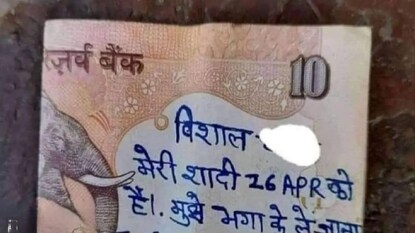 रज़र्व बैंक 10
विशाल
मेरी शादी 26 APR को
है।. मुझे भगा के ले जाना